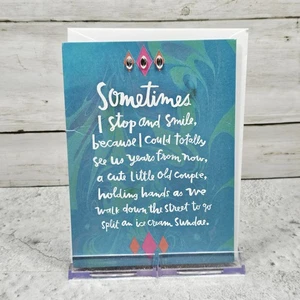 Sometimes
I stop and smile,
because I could totally
see us years from now,
a cute little old couple,
holding hands as we
walk down the street to go
split an ice cream sundae.